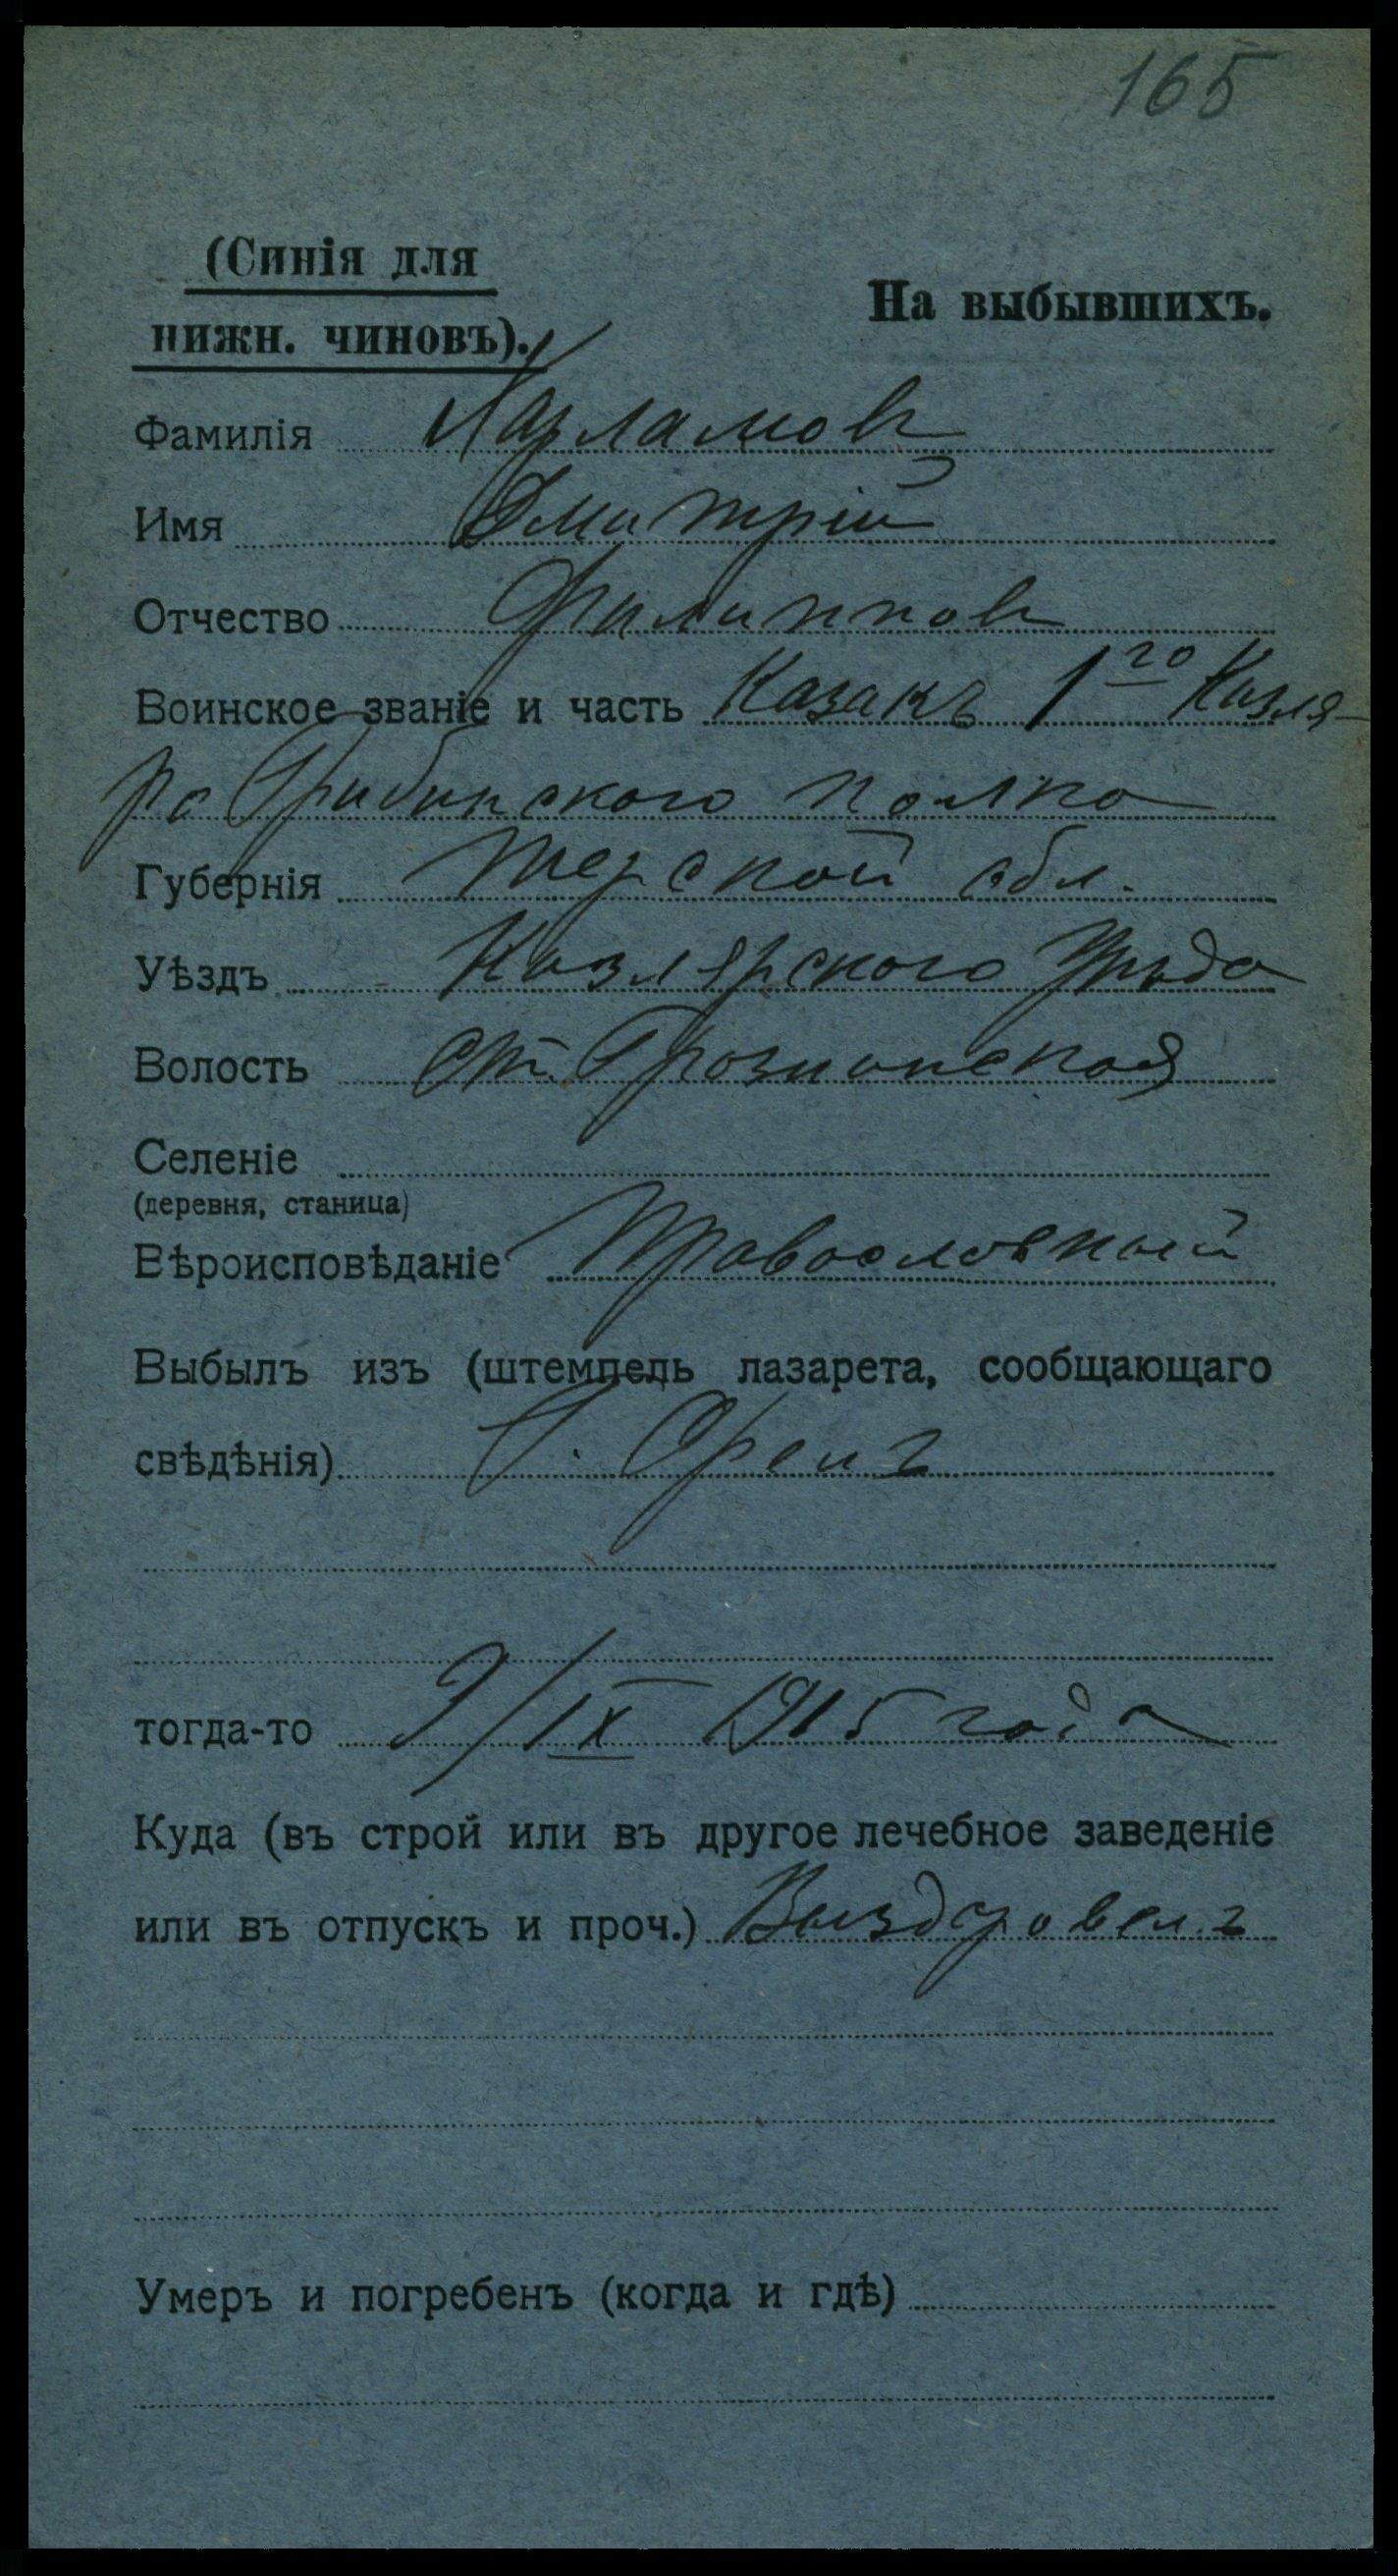 165
(Синія для
нижн. чиновъ).
На выбывшихъ.
Фамилія Харламов
Имя Дмитрій
Отчество Филиппов
Воинское званіе и часть Казакъ 1го Кизля-
ро Гребинского полка
Губернія Терской обл.
Уѣздъ Кизлярского
Волость Ст.
Селеніе
(деревня, станица)
Вѣроисповѣданіе Православный
Выбылъ изъ (штемпель лазарета, сообщающаго
свѣдѣнія) Г. Орелъ
тогда-то 9/IX 1915 года
Куда (въ строй или въ другое лечебное заведеніе
или въ отпускъ и проч.) Выздоровелъ
Умеръ и погребенъ (когда и гдѣ)